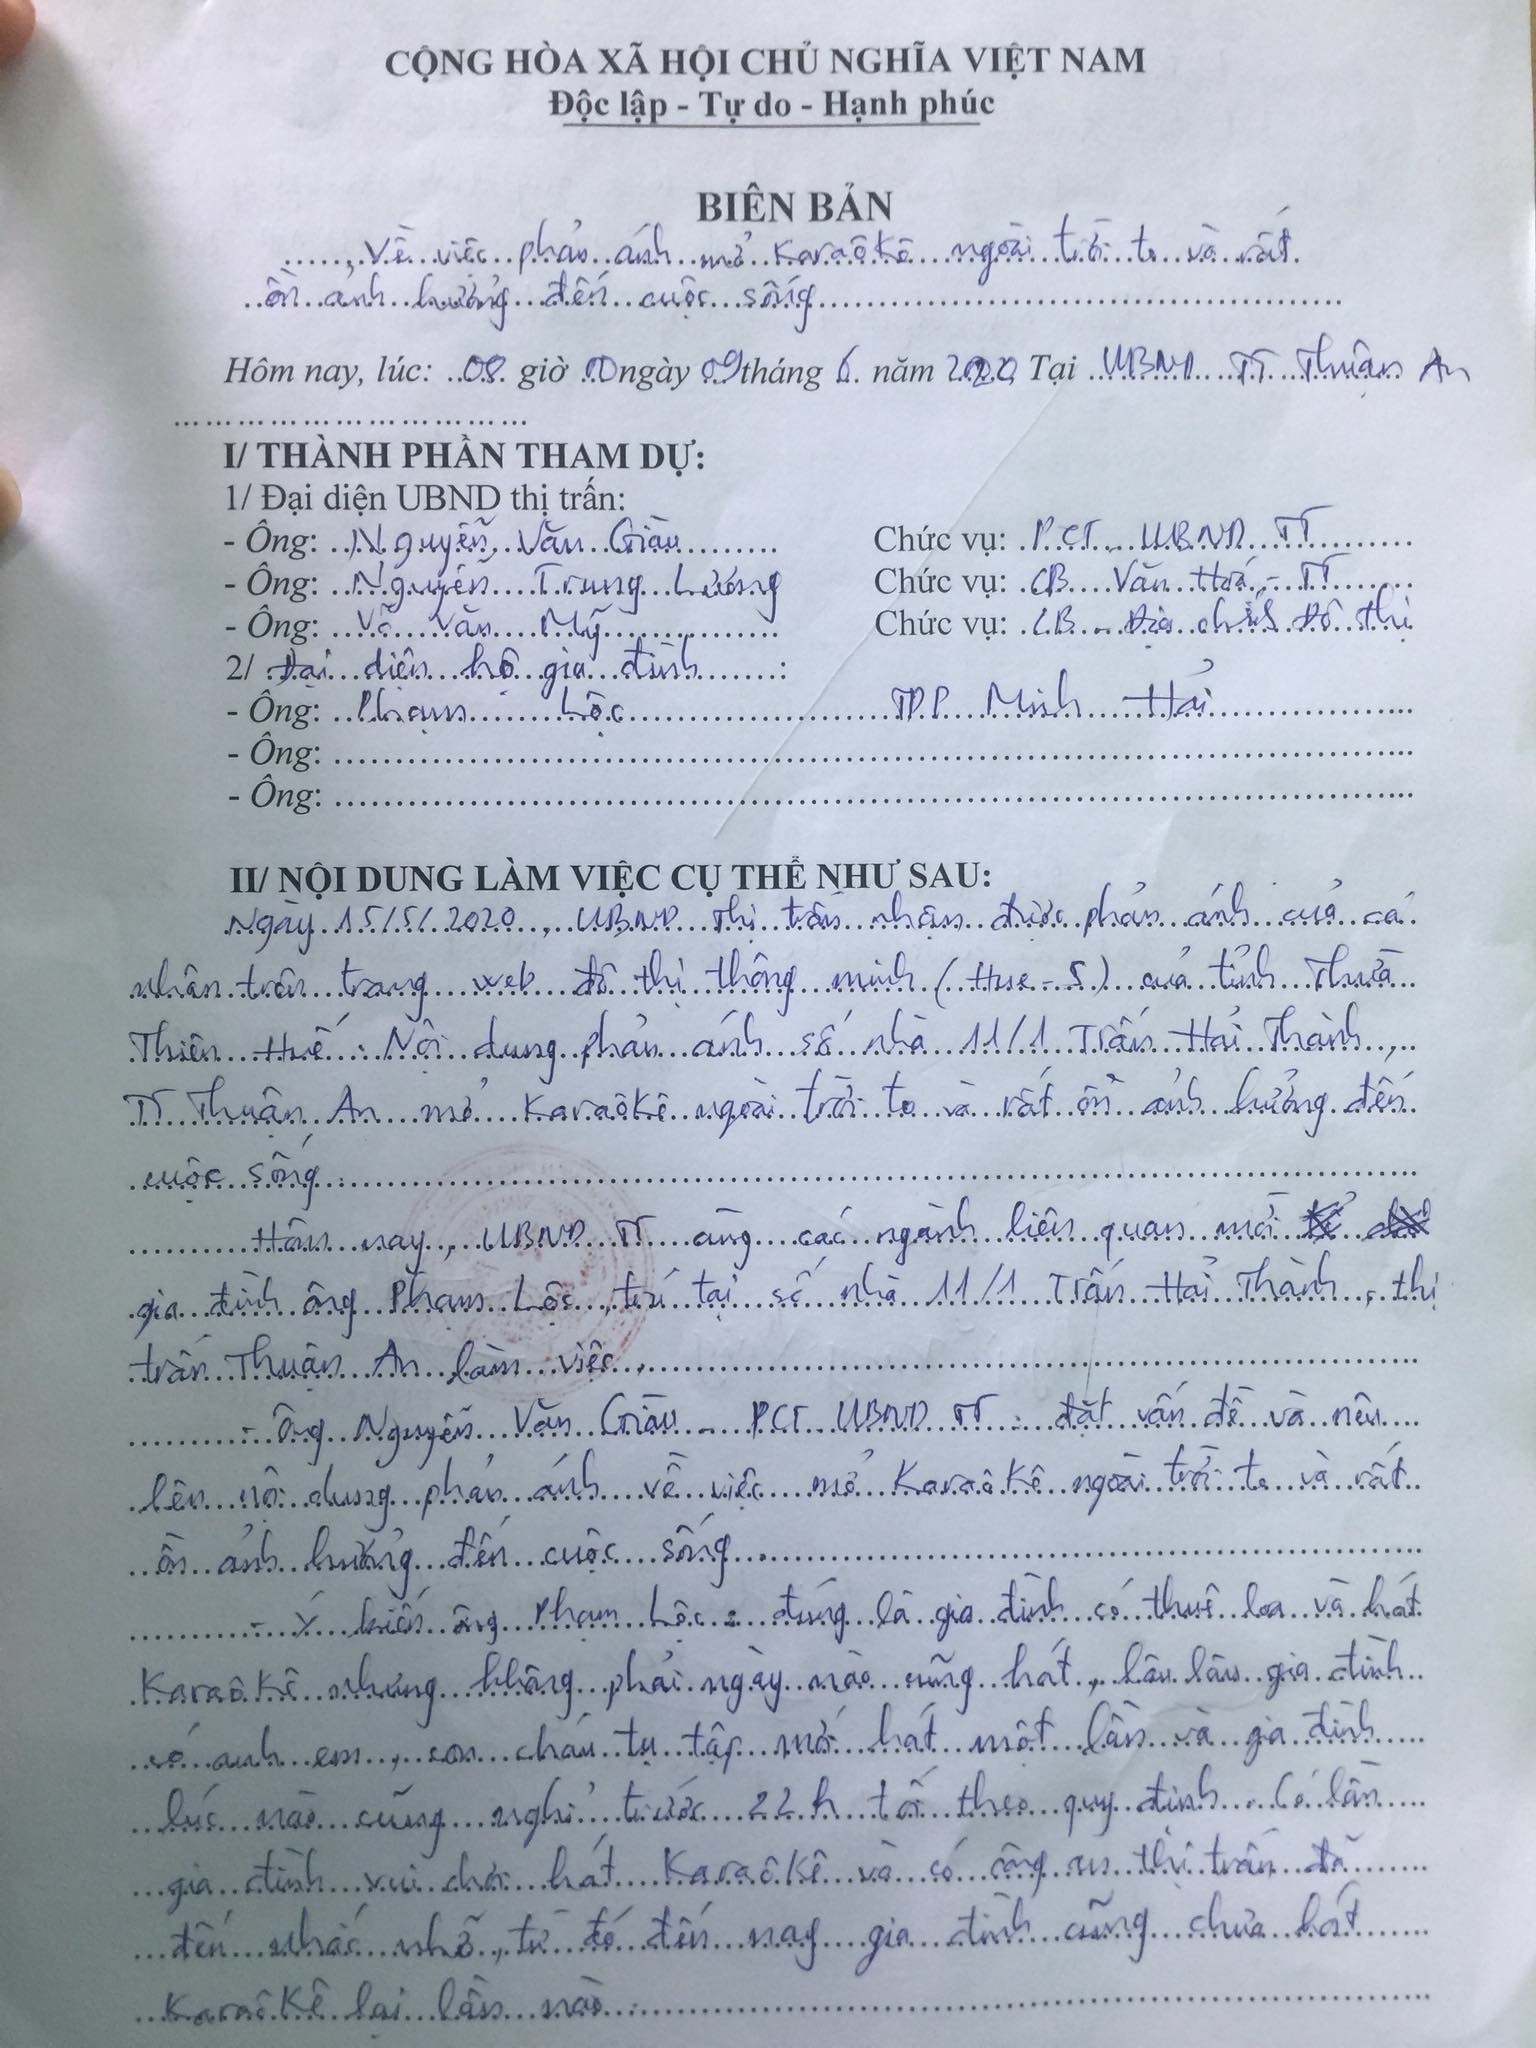 CỘNG HÒA XÃ HỘI CHỦ NGHĨA VIỆT NAM
Độc lập - Tự do - Hạnh phúc
BIÊN BẢN
Về việc phản ánh mở Karaôkê ngoài trời to và rất
ồn ảnh hưởng đến cuộc sống
Hôm nay, lúc: 08 giờ 00 ngày 09 tháng 6 năm 2020 Tại UBND TT Thuận An
I/ THÀNH PHẦN THAM DỰ:
1/ Đại diện UBND thị trấn:
- Ông: Nguyễn Văn Giàu Chức vụ: PCT UBND TT
- Ông: Nguyễn Trung Lương Chức vụ: CB Văn Hoá - TT
- Ông: Võ Văn Mỹ Chức vụ: CB - Địa chính Đô thị
2/ Đại diện hộ gia đình :
- Ông: Phạm Lộc TDP Minh Hải
- Ông:
- Ông:
II/ NỘI DUNG LÀM VIỆC CỤ THỂ NHƯ SAU:
Ngày 15/5/2020, UBND Thị trấn nhận được phản ánh của cá
nhân trên trang web đô thị thông minh (Hue-S) của tỉnh Thừa
Thiên Huế. Nội dung phản ánh số nhà 11/1 Trấn Hải Thành,
TT Thuận An mở Karaôkê ngoài trời to và rất ồn ảnh hưởng đến
cuộc sống.
Hôm nay, UBND TT cùng các ngành liên quan mời
gia đình ông Phạm Lộc, trú tại số nhà 11/1 Trấn Hải Thành, thị
trấn Thuận An làm việc.
- Ông Nguyễn Văn Giàu - PCT UBND TT: đặt vấn đề và nêu
lên nội dung phản ánh về việc mở Karaôkê ngoài trời to và rất
ồn ảnh hưởng đến cuộc sống.
- Ý kiến ông Phạm Lộc: đúng là gia đình có thuê loa và hát
Karaôkê nhưng không phải ngày nào cũng hát, lâu lâu gia đình
có anh em, con cháu tụ tập mới hát một lần và gia đình
lúc nào cũng nghỉ trước 22h tối theo quy định. Có lần
gia đình vui chơi hát Karaôkê và có công an thị trấn đã
đến nhắc nhỡ, từ đó đến nay gia đình cũng chưa hát
Karaôkê lại lần nào.